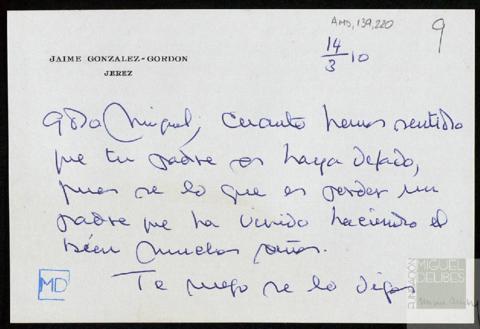 AMD, 139, 220
9
JAIME GONZALEZ-GORDON
JEREZ
14/3 10
Qdo Miguel, cuanto hemos sentido
que tu padre os haya dejado,
pues se lo que es perder un
padre que ha venido haciendo el
bien muchos años.
Te ruego se lo digas
MD
FUNDACIÓN
MIGUEL
DELIBES